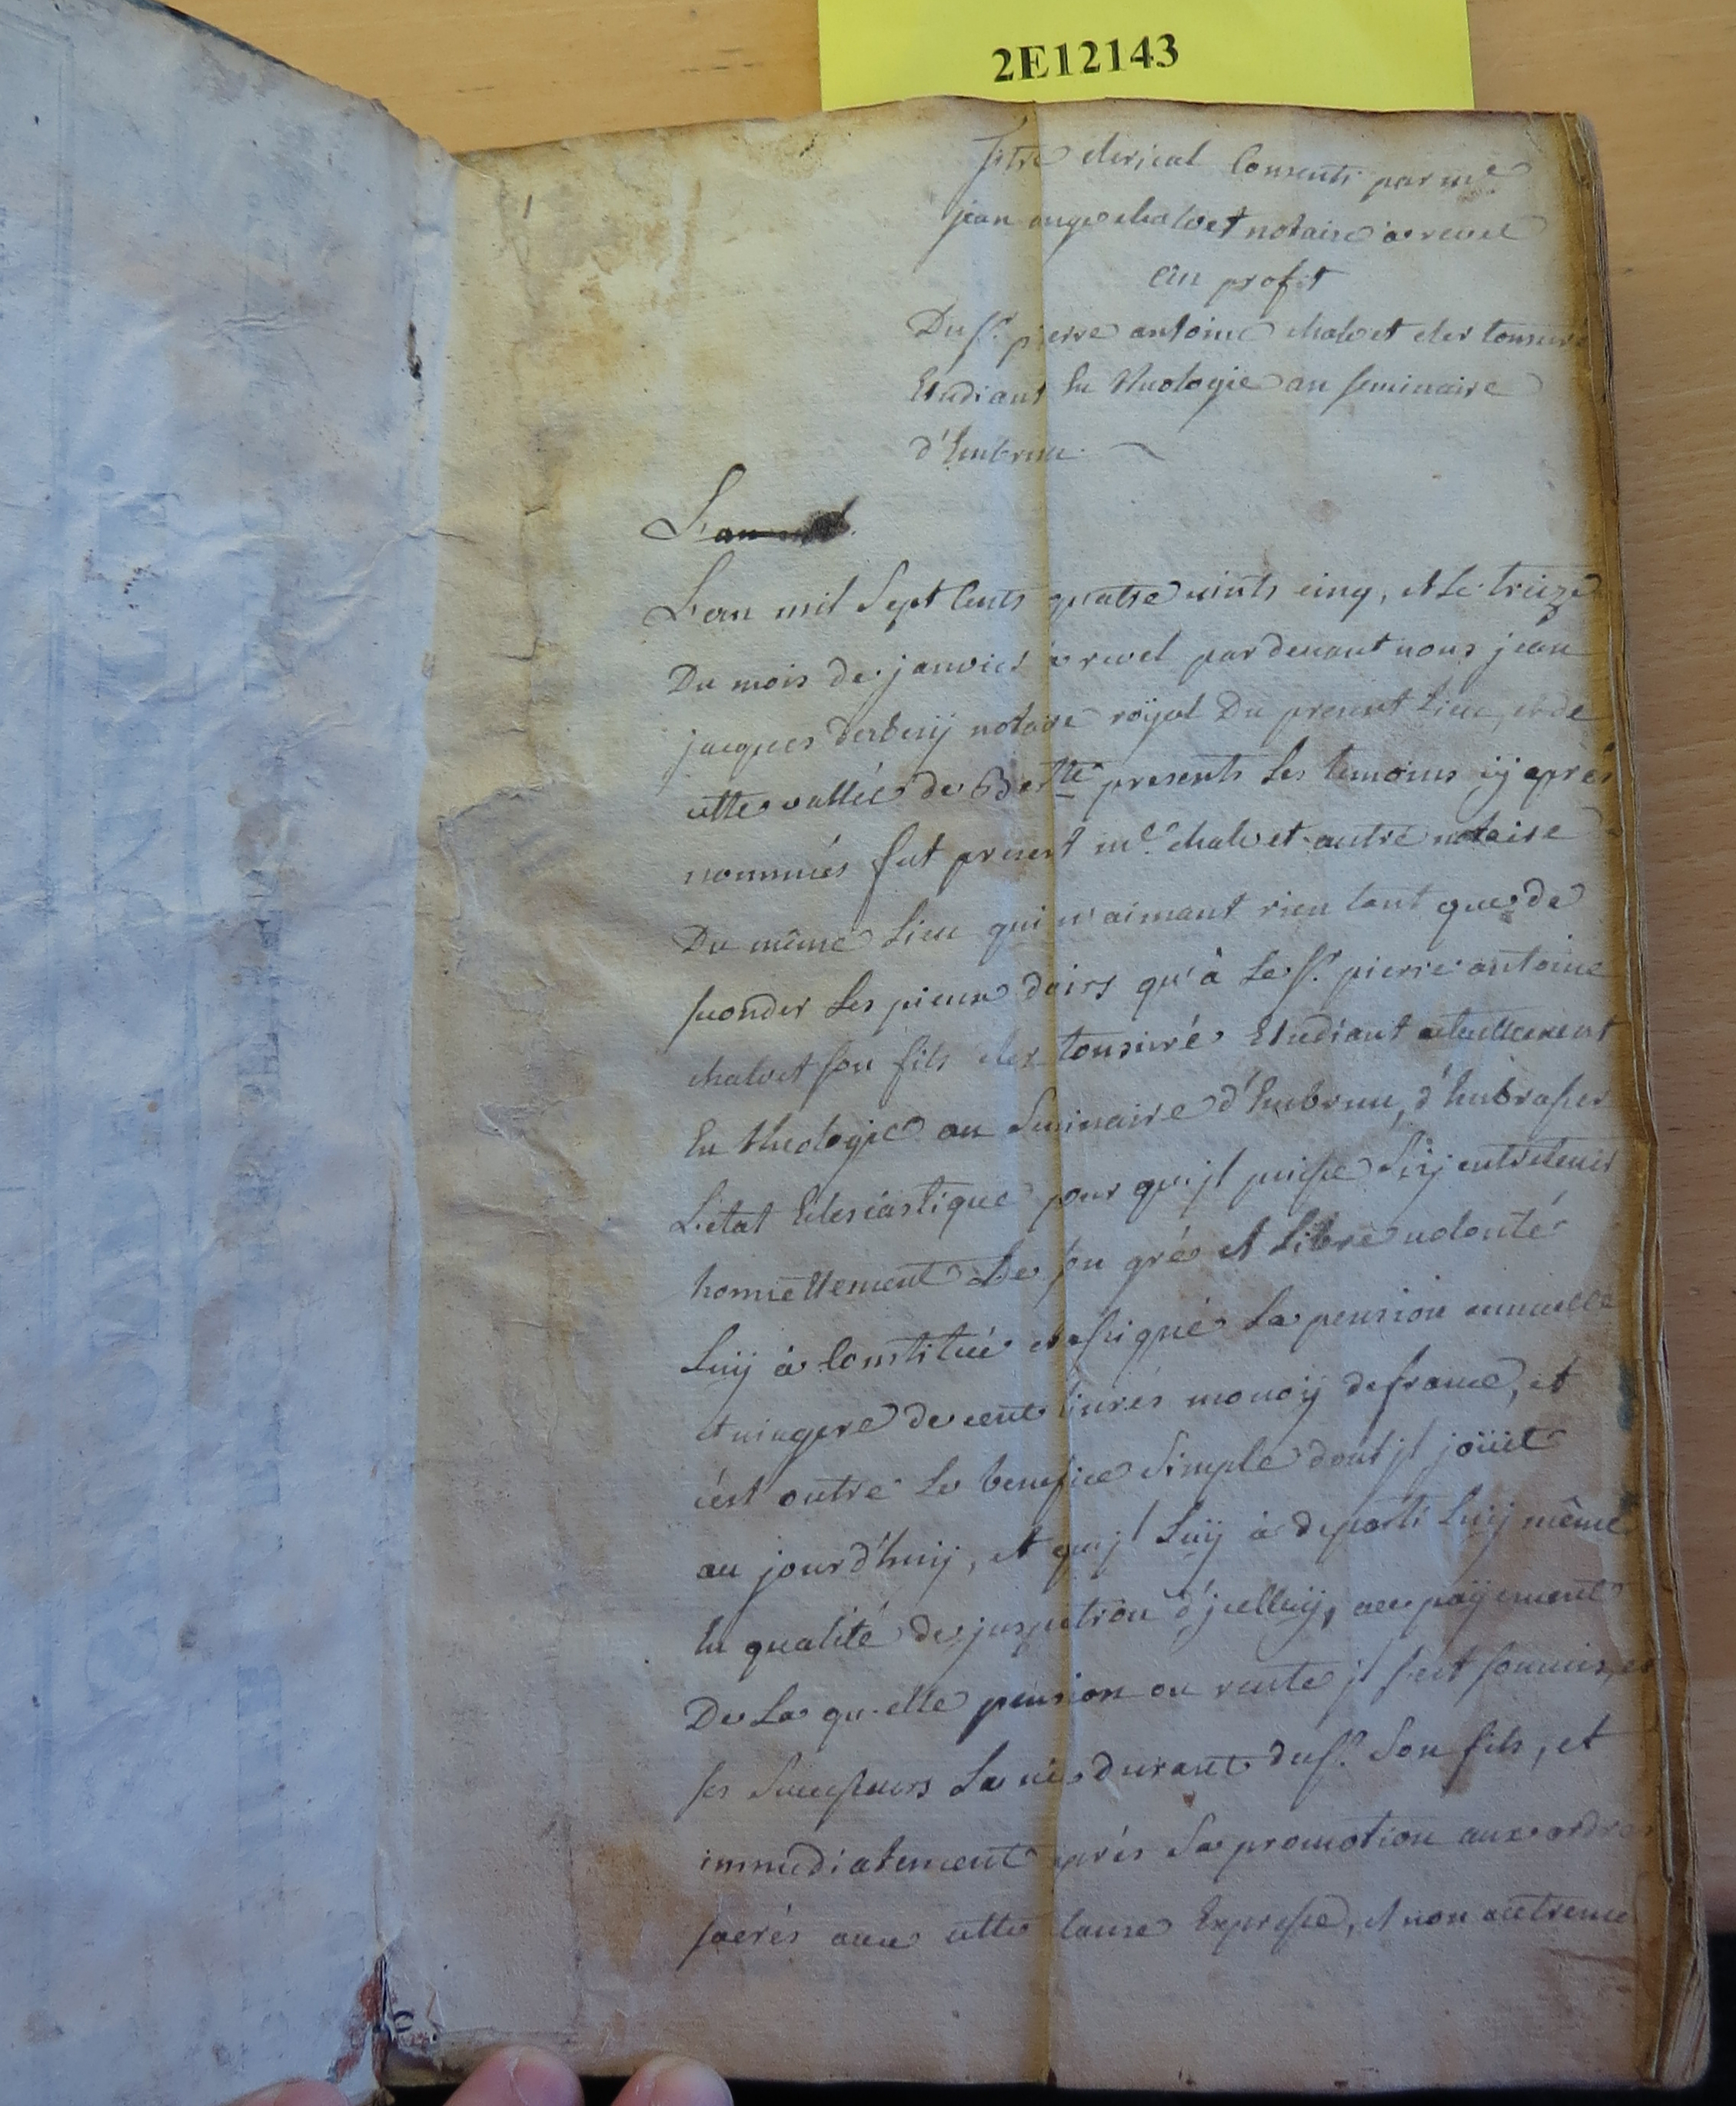 2E12143
Titre clerical Consenti par me
jean ange chalvet notaire à revel
au profit
Du sr. pierre antoine chalvet cler tonsuré
Etudiant En theologie au seminaire
d'Embrun
L'an
L'an mil Sept Cents quatre vints cinq, et Le treize
Du mois de janvier à revel par devant nous jean
jacques derbesij notaire röyal Du present Lieu, et de
cette vallée de Bar.tte presents Les temoins cÿ aprés
nommés fut present me. chalvet autre notaire
Du même Lieu qui n'aimant rien tant que de
seconder Les pieux desirs qu'à Le sr. pierre antoine
chalvet son fils cler tonsuré Etudiant actuellement
En theologie au Seminaire d'Embrun, d'Embrasser
L'etat Eclesiastique pour qu'jl puisse S'ij entretenir
honnettement De son gré et Libre volonté
Luÿ à Constitué et assigné La pension annuelle
et viagere de cent livres monoÿ de france, et
c'est outre Le benefice Simple dont jl joüit
au jourd'huij, et qu'jl Luÿ à departi Luij même
En qualité de juspatron d'jcelluÿ, au paÿement
De La qu'elle pension ou rente jl s'est soumis, et
ses Successeurs La vie durant du sr. Son fils, et
immediatement aprés Sa promotion aux ordres
sacrés avec cette clause Expresse, et non autreme